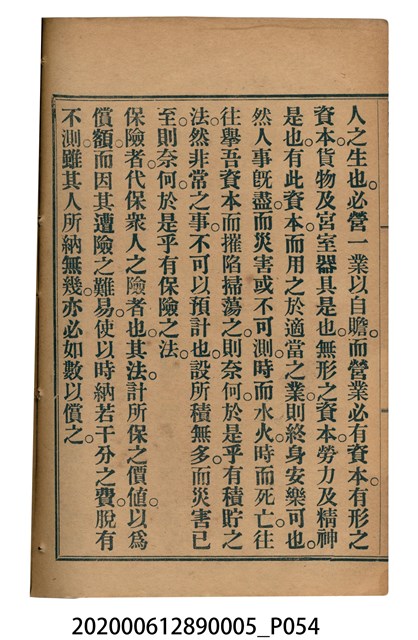 人之生也。必營一業以自贍。而營業必有資本。有形之
資本。貨物及宮室器具是也。無形之資本。勞力及精神
是也。有此資本。而用之於適當之業。則終身安樂可也。
然人事旣盡。而災害或不可測。時而水火。時而死亡。往
往舉吾資本而摧陷掃蕩之。則奈何。於是乎有積貯之
法。然非常之事。不可以預計也。設所積無多。而災害已
至。則奈何。於是乎有保險之法。
保險者。代保衆人之險者也。其法。計所保之價値。以爲
償額。而因其遭險之難易。使以時納若干分之費。脫有
不測。雖其人所納無幾。亦必如數以償之。
202000612890005_P054